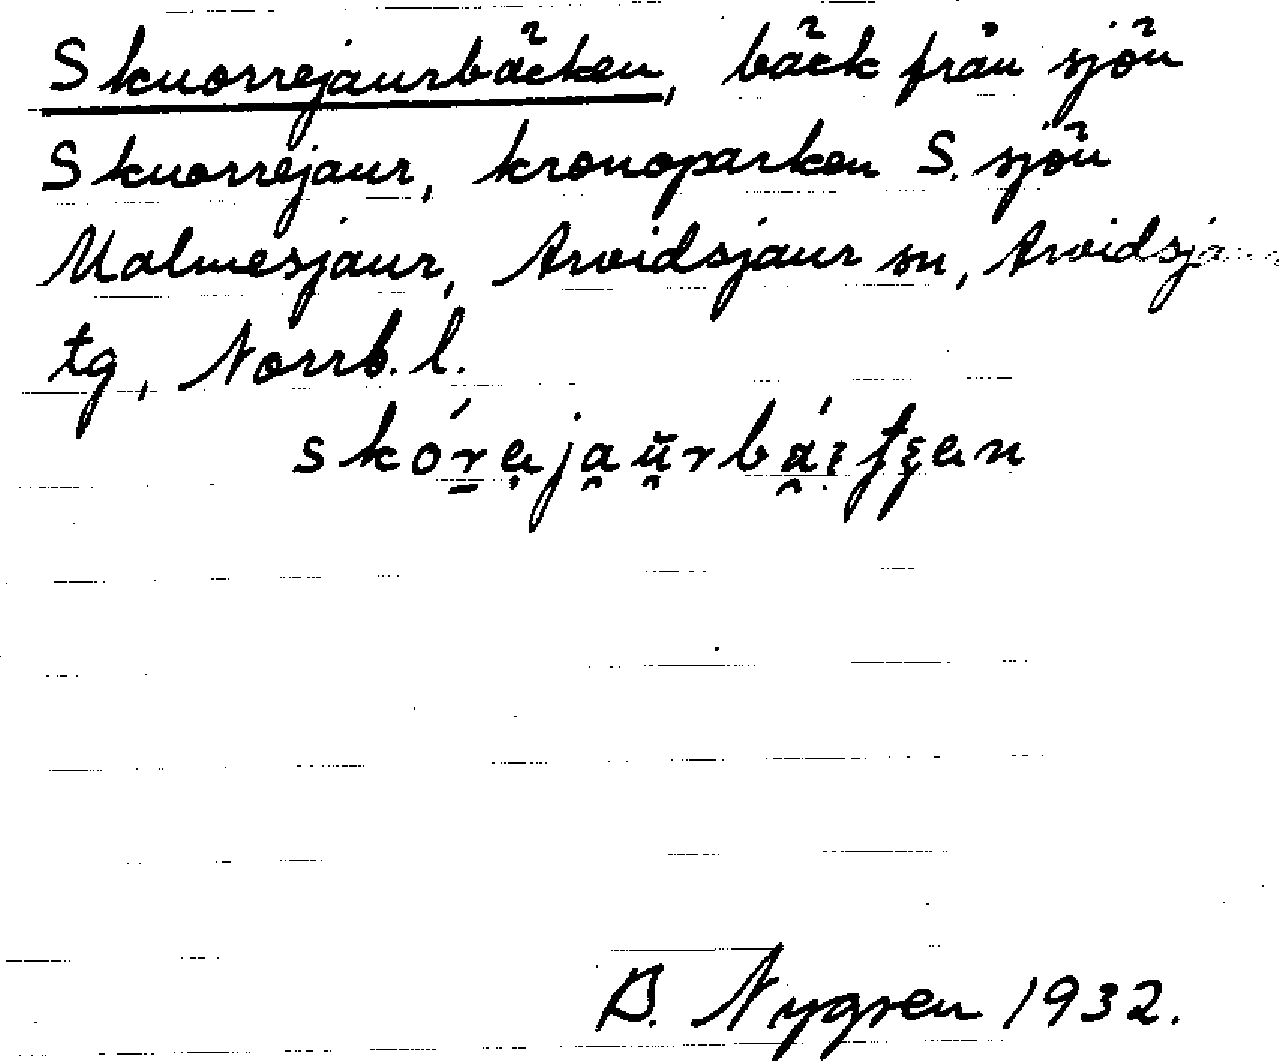 Skuorrejaurbäcken, bäck från sjön
Skuorrejaur, kronoparken S. sjön
Malmesjaur, Arvidsjaur sn, Arvidsjaur
tg, Norrb. l.
B. Nygren 1932.